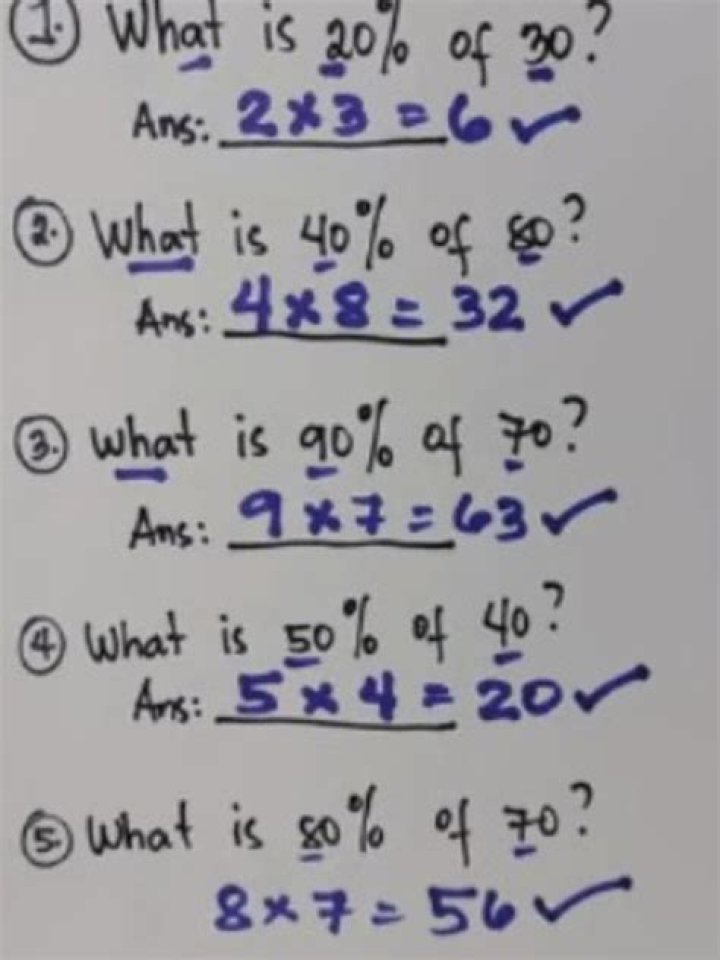 1. What is 20% of 30?
Ans: 2 x 3 = 6 ✓
2. What is 40% of 80?
Ans: 4 x 8 = 32 ✓
3. What is 90% of 70?
Ans: 9 x 7 = 63 ✓
4 What is 50% of 40?
Ans: 5 x 4 = 20 ✓
5. What is 80% of 70?
8 x 7 = 56 ✓